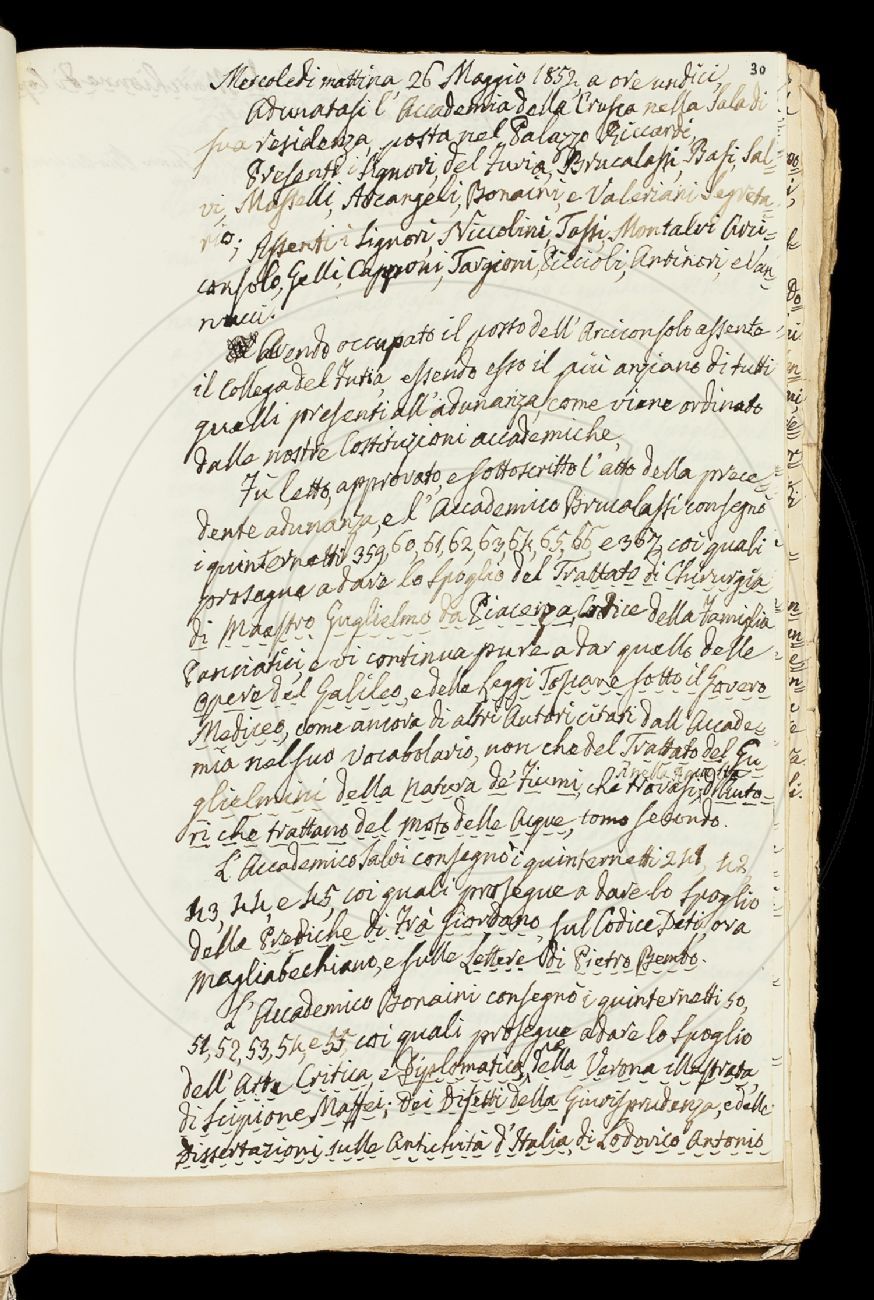 30
Mercoledì mattina 26 Maggio 1852, a ore undici
Adunatasi l'Accademia della Crusca nella Sala di
sua residenza, posta nel Palazzo Riccardi,
Presenti i Signori, del Furia, Brucalassi, Basi, Sal=
vi, Masselli, Arcangeli, Bonaini, e Valeriani Segreta=
rio; Assenti i Signori, Niccolini, Tassi, Montalvi Arci=
consolo, Gelli, Capponi, Targioni, Piccioli, Antinori, e Van=
nucci.
Avendo occupato il posto dell'Arciconsolo assente
il Collega del Furia, essendo esso il più anziano di tutti
quelli presenti all'adunanza, come viene ordinato
dalle nostre Costituzioni accademiche,
Fù letto, approvato, e sottoscritto l'atto della prece=
dente adunanza, e l'Accademico Brucalassi consegnò
i quinternetti 359, 60, 61, 62, 63, 64, 65, 66 e 367, coi quali
prosegue a dare lo spoglio del Trattato di Chirurgia
di Maestro Guglielmo da Piacenza, Codice della Famiglia
Panciatici, e vi continua pure a dar quello delle
opere del Galileo, e delle Leggi Toscane sotto il Govero
Mediceo, come ancora di altri Autori citati dall'Accade=
mia nel suo Vocabolario, non che del Trattato del Gu=
glielmini della natura de' Fiumi, che trovasi nella Raccolta di Auto=
ri che trattano del moto delle Acque, tomo secondo.
L'Accademico Salvi consegnò i quinternetti 241, 42,
43, 44, e 45, coi quali prosegue a dare lo spoglio
delle Prediche di Frà Giordano, sul Codice Dati, ora
Magliabechiano, e sulle Lettere di Pietro Bembo.
L'Accademico Bonaini consegnò i quinternetti 50,
51, 52, 53, 54, e 55, coi quali prosegue a dare lo spoglio
dell'Arte Critica, e Diplomatica, della Verona illustrata
di Scipione Maffei; dei Difetti della Giurisprudenza, e delle
Dissertazioni sulle Antichità d'Italia, di Lodovico Antonio